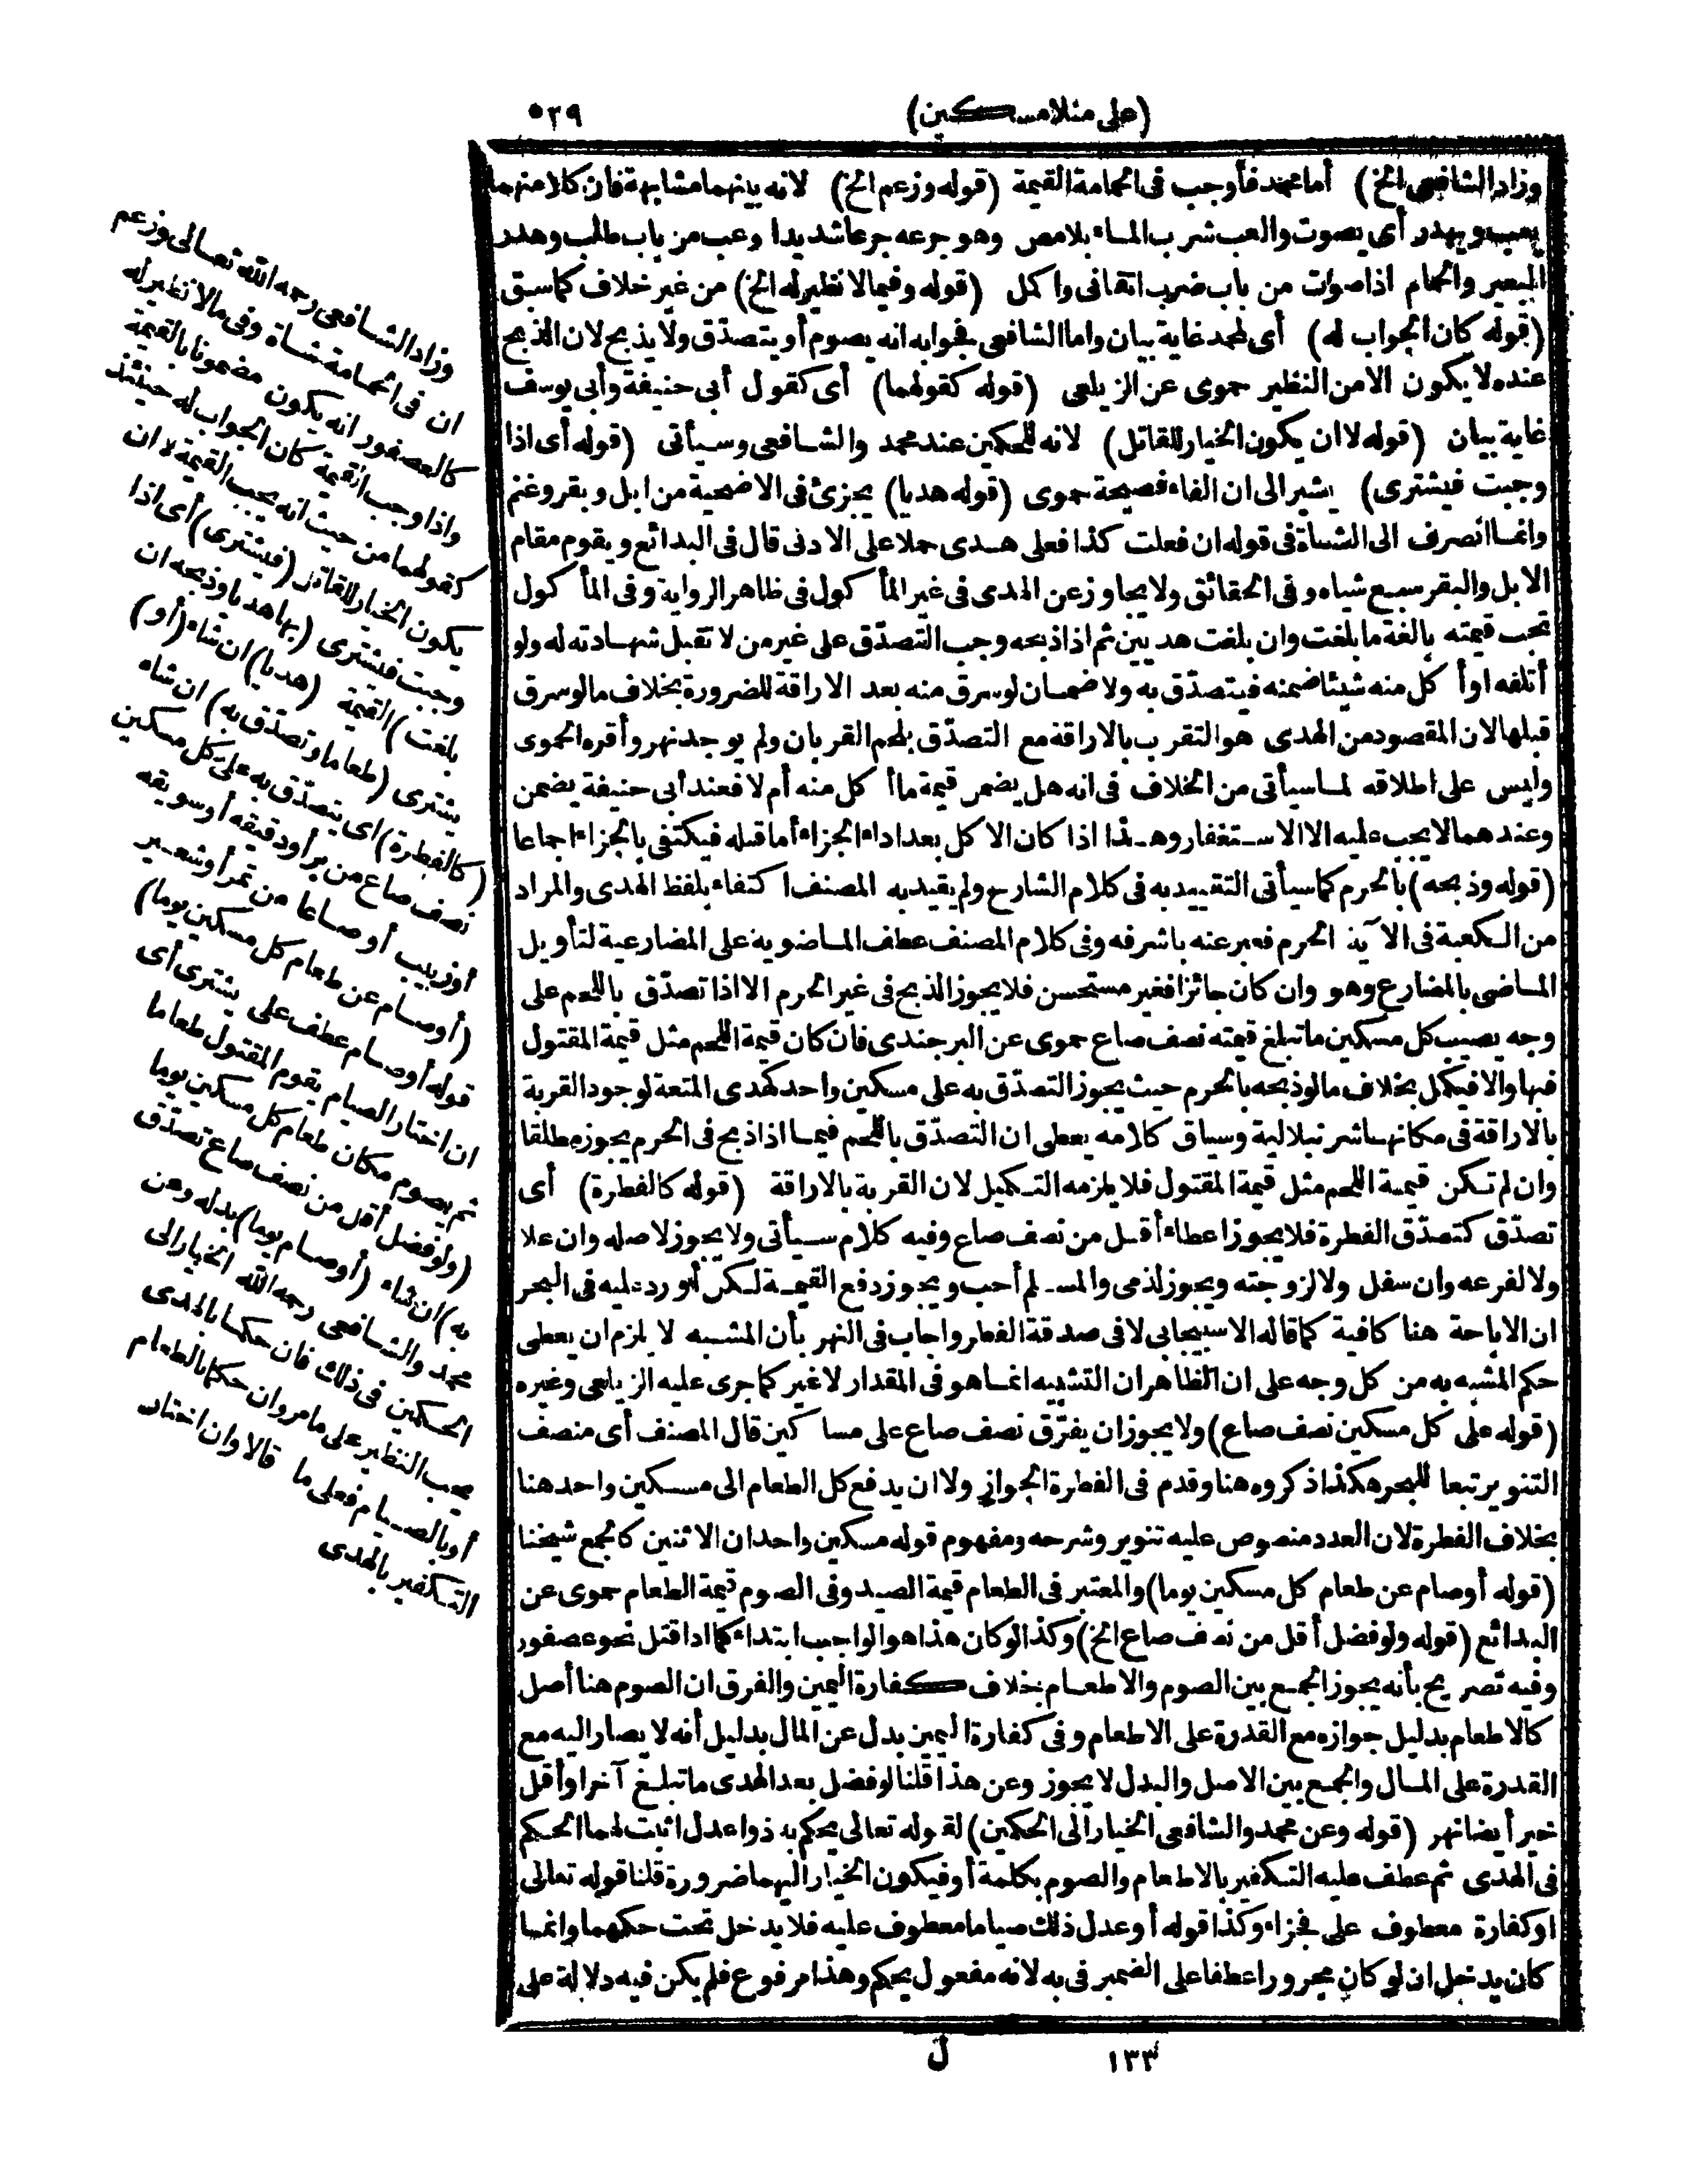 (على منلا مسكين)
٥٢٩
وزاد الشافعى الخ) أما محمد فأوجب فى الحمامة القيمة (قوله وزعم الخ) لانه بينهما مشابهة فان كلا منهما
يعب ويهدر أى يصوت والعب شرب الماء بلا مص وهو جرعه جرعا شديدا وعب من باب طلب وهدر
البعير والحمام اذا صوات من باب ضرب اتقانى واكمل (قوله وفيما لا نظير له الخ) من غير خلاف كما سبق
(قوله كان الجواب له) أى لمحمد غاية بيان واما الشافعى فجوابه انه يصوم أو يتصدّق ولا يذبح لان الذبح
عنده لا يكون الا من النظير حموى عن الزيلعى (قوله كقولهما) أى كقول أبى حنيفة وأبى يوسف
غاية بيان (قوله لا ان يكون الخيار للقاتل) لانه للحكمين عند محمد والشافعى وسيأتى (قوله أى اذا
وجبت فيشترى) يشير الى ان الفاء فصيحة حموى (قوله هديا) يجزئ فى الاضحية من ابل وبقر وغنم
وانما انصرف الى الشاة فى قوله ان فعلت كذا فعلى هدى حملا على الادنى قال فى البدائع ويقوم مقام
الابل والبقر سبع شياه وفى الحقائق ولا يجاوز عن الهدى فى غير المأكول فى ظاهر الرواية وفى المأكول
تجب قيمته بالغة ما بلغت وان بلغت هديين ثم اذا ذبحه وجب التصدّق على غير من لا تقبل شهادته له ولو
أتلفه او أكل منه شيئا ضمنه فيتصدّق به ولا ضمان لو سرق منه بعد الاراقة للضرورة بخلاف ما لو سرق
قبلها لان المقصود من الهدى هو التقرب بالاراقة مع التصدّق بلحم القربان ولم يوجد نهر وأقره الحموى
وليس على اطلاقه لما سيأتى من الخلاف فى انه هل يضمن قيمة ما أكل منه أم لا فعند أبى حنيفة يضمن
وعندهما لا يجب عليه الا الاستغفار وهذا اذا كان الاكل بعد اداء الجزاء أما قبله فيكتفى بالجزاء اجماعا
(قوله وذبحه) بالحرم كما سيأتى التقييد به فى كلام الشارح ولم يقيد به المصنف اكتفاء بلفظ الهدى والمراد
من الكعبة فى الآية الحرم فعبر عنه باشرفه وفى كلام المصنف عطف الماضوية على المضارعية لتأويل
الماضى بالمضارع وهو وان كان جائزا فغير مستحسن فلا يجوز الذبح فى غير الحرم الا اذا تصدّق باللحم على
وجه يصيب كل مسكين ما تبلغ قيمته نصف صاع حموى عن البرجندى فان كان قيمة اللحم مثل قيمة المقتول
فبها والا فيكمل بخلاف ما لو ذبحه بالحرم حيث يجوز التصدّق به على مسكين واحد كهدى المتعة لوجود القربة
بالاراقة فى مكانها شرنبلالية وسياق كلامه يعطى ان التصدّق باللحم فيما اذا ذبح فى الحرم يجوز مطلقا
وان لم تكن قيمة اللحم مثل قيمة المقتول فلا يلزمه التكميل لان القربة بالاراقة (قوله كالفطرة) أى
تصدّق كتصدّق الفطرة فلا يجوز اعطاء أقل من نصف صاع وفيه كلام سيأتى ولا يجوز لاصله وان علا
ولا لفرعه وان سفل ولا لزوجته ويجوز لذمى والمسلم أحب ويجوز دفع القيمة لكن أورد عليه فى البحر
ان الاباحة هنا كافية كما قاله الاسبيجابى لا فى صدقة الفطر واجاب فى النهر بأن المشبه لا يلزم ان يعطى
حكم المشبه به من كل وجه على ان الظاهر ان التشبيه انما هو فى المقدار لا غير كما جرى عليه الزيلعى وغيره
(قوله على كل مسكين نصف صاع) ولا يجوز ان يفرّق نصف صاع على مساكين قال المصنف أى منصف
التنوير تبعا للبحر هكذا ذكروه هنا وقدم فى الفطرة الجواز ولا ان يدفع كل الطعام الى مسكين واحد هنا
بخلاف الفطرة لان العدد منصوص عليه تنوير وشرحه ومفهوم قوله مسكين واحد ان الاثنين كالجمع شيخنا
(قوله أو صام عن طعام كل مسكين يوما) والمعتبر فى الطعام قيمة الصيد وفى الصوم قيمة الطعام حموى عن
البدائع (قوله ولو فضل أقل من نصف صاع الخ) وكذا لو كان هذا هو الواجب ابتداء كما اذا قتل نحو عصفور
وفيه تصريح بأنه يجوز الجمع بين الصوم والاطعام بخلاف كفارة اليمين والفرق ان الصوم هنا أصل
كالاطعام بدليل جوازه مع القدرة على الاطعام وفى كفارة اليمين بدل عن المال بدليل أنه لا يصار اليه مع
القدرة على المال والجمع بين الاصل والبدل لا يجوز وعن هذا قلنا لو فضل بعد الهدى ما تبلغ آخر أو أقل
خير أيضا نهر (قوله وعن محمد والشافعى الخيار الى الحكمين) لقوله تعالى يحكم به ذوا عدل اثبت لهما الحكم
فى الهدى ثم عطف عليه التكفير بالاطعام والصوم بكلمة أو فيكون الخيار اليهما ضرورة قلنا قوله تعالى
او كفارة معطوف على فجزاء وكذا قوله أو عدل ذلك صياما معطوف عليه فلا يدخل تحت حكمهما وانما
كان يدخل ان لو كان مجرورا عطفا على الضمير فى به لانه مفعول يحكم وهذا مرفوع فلم يكن فيه دلالة على
وزاد الشافعى رحمه الله تعالى وزعم
ان فى الحمامة شاة وفى ما لا نظير له
كالعصفور انه يكون مضمونا بالقيمة
واذا وجب القيمة كان الجواب له حينئذ
كقولهما من حيث انه يجب القيمة لا ان
يكون الخيار للقاتل (فيشترى) أى اذا
وجبت فيشترى (بها هديا وذبحه ان
بلغت) القيمة (هديا) ان شاء (أو)
يشترى (طعاما وتصدّق به) ان شاء
(كالفطرة) اى يتصدّق به على كل مسكين
نصف صاع من بر أو دقيقه أو سويقه
أو زبيب أو صاعا من تمر أو شعير
(أو صام عن طعام كل مسكين يوما)
قوله أو صام عطف على يشترى أى
ان اختار الصيام يقوم المقتول طعاما
ثم يصوم مكان طعام كل مسكين يوما
(ولو فضل أقل من نصف صاع تصدّق
به) ان شاء (أو صام يوما) بدله وعن
محمد والشافعى رحمه الله الخيار الى
الحكمين فى ذلك فان حكما بالهدى
يجب النظير على ما مر وان حكما بالطعام
أو بالصيام فعلى ما قالا وان اختار
التكفير بالهدى
١٣٣
ل